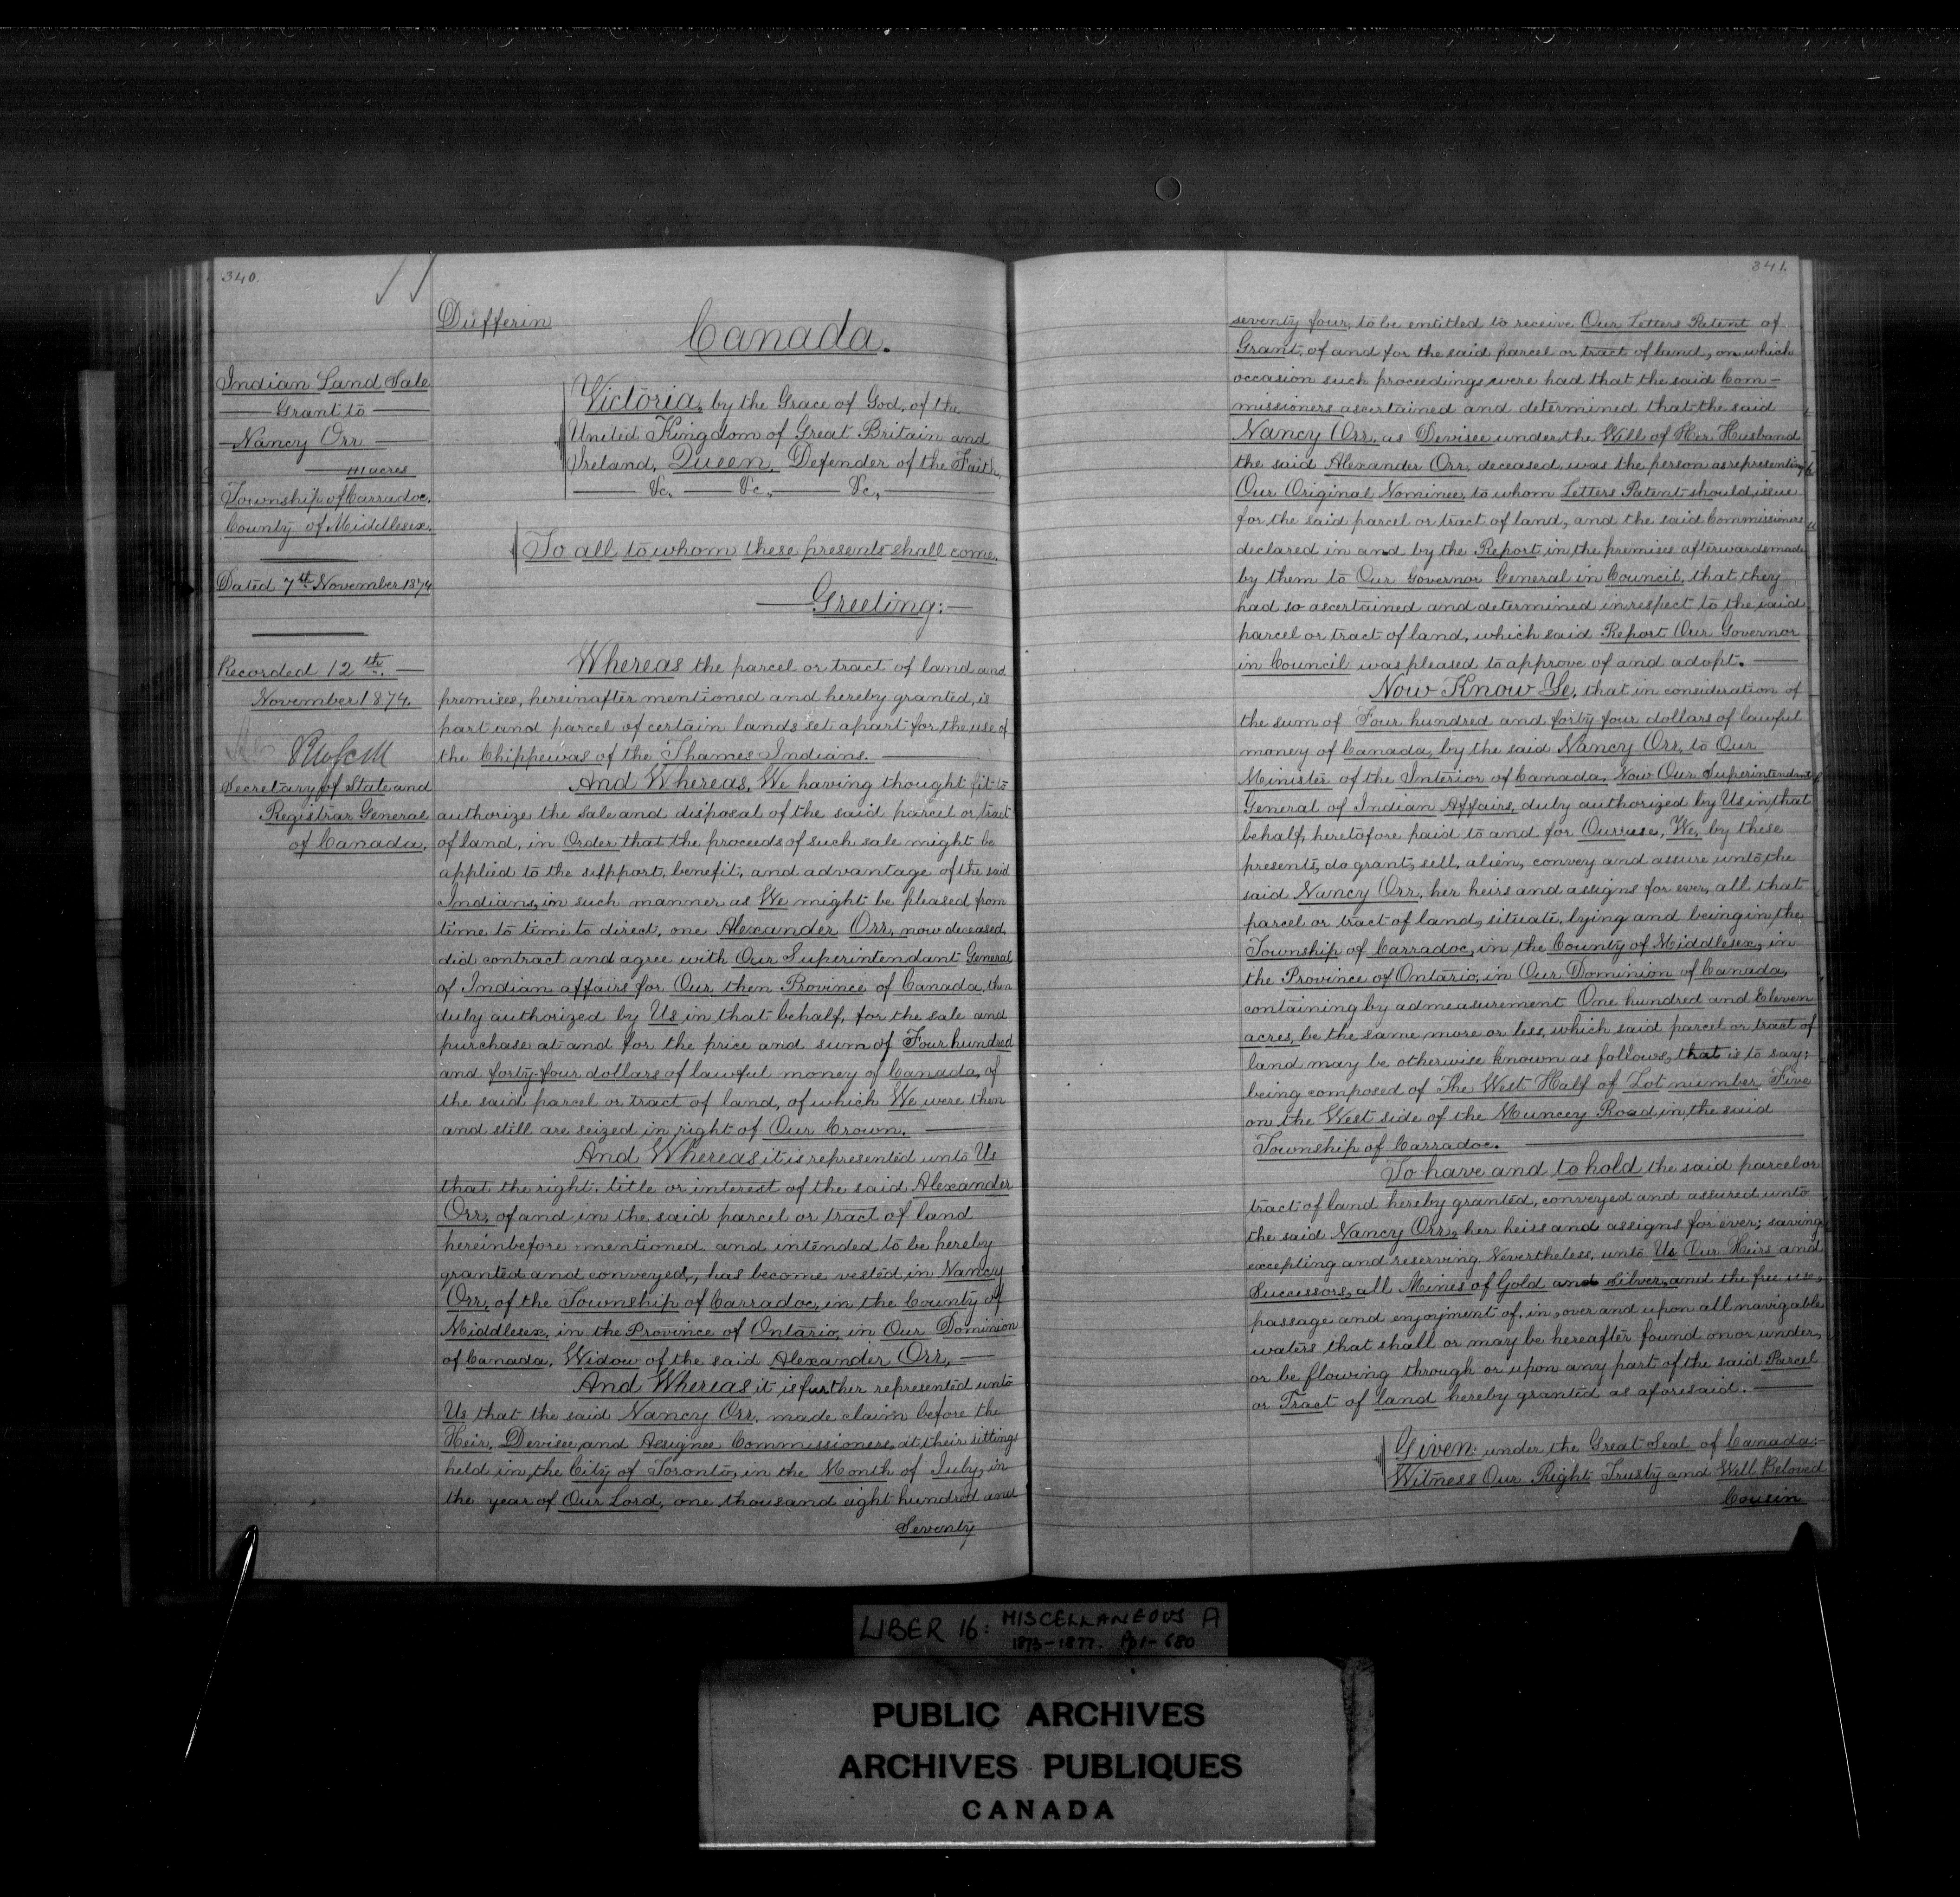 340.
Dufferin
Canada.
Indian Land Sale
Grant to
Nancy Orr
111 acres
Township of Carradoc.
County of Middlesex.
Dated 7th November 1874
Recorded 12th.
November 1874.
Secretary of State and
Registrar General
of Canada.
Victoria, by the Grace of God, of the
United Kingdom of Great Britain and
Ireland, Queen, Defender of the Faith,
&c, &c, &c,
To all to whom these presents shall come.
Greeting:
Whereas the parcel or tract of land and
premises, hereinafter mentioned and hereby granted, is
part and parcel of certain lands set apart for the use of
the Chippewas of the Thames Indians.
And Whereas, We having thought fit to
authorize the sale and disposal of the said parcel or tract
of land, in Order that the proceeds of such sale might be
applied to the support, benefit, and advantage of the said
Indians, in such manner as We might be pleased from
time to time to direct, one Alexander Orr, now deceased,
did contract and agree with Our Superintendant General
of Indian affairs for Our then Province of Canada, then
duly authorized by Us in that behalf, for the sale and
purchase at and for the price and sum of Four hundred
and forty-four dollars of lawful money of Canada, of
the said parcel or tract of land, of which We were then
and still are seized in right of Our Crown.
And Whereas it is represented unto Us
that the right, title or interest of the said Alexander
Orr, of and in the said parcel or tract of land
hereinbefore mentioned and intended to be hereby
granted and conveyed, has become vested in Nancy
Orr, of the Township of Carradoc, in the County of
Middlesex, in the Province of Ontario, in Our Dominion
of Canada, Widow of the said Alexander Orr,
And Whereas it is further represented unto
Us that the said Nancy Orr, made claim before the
Heir, Devisee and Assignee Commissioners, at their sittings
held in the City of Toronto, in the Month of July, in
the year of Our Lord, one thousand eight hundred and
Seventy
341.
seventy four, to be entitled to receive Our Letters Patent of
Grant, of and for the said parcel or tract of land, on which
occasion such proceedings were had that the said Com-
missioners ascertained and determined that the said
Nancy Orr, as Devisee under the Will of Her Husband
the said Alexander Orr, deceased, was the person as representing
Our Original Nominee, to whom Letters Patent should issue
for the said parcel or tract of land, and the said Commissioners
declared in and by the Report in the premises afterwards made
by them to Our Governor General in Council, that they
had so ascertained and determined in respect to the said
parcel or tract of land, which said Report Our Governor
in Council was pleased to approve of and adopt.
Now Know Ye, that in consideration of
the sum of Four hundred and forty four dollars of lawful
money of Canada, by the said Nancy Orr, to Our
Minister of the Interior of Canada, Now Our Superintendant
General of Indian Affairs, duly authorized by Us in that
behalf, heretofore paid to and for Our use, We, by these
presents, do grant, sell, alien, convey and assure unto the
said Nancy Orr, her heirs and assigns for ever, all that
parcel or tract of land, situate, lying and being in the
Township of Carradoc, in the County of Middlesex, in
the Province of Ontario, in Our Dominion of Canada,
containing by admeasurement One hundred and Eleven
acres, be the same more or less, which said parcel or tract of
land may be otherwise known as follows, that is to say:
being composed of The West Half of Lot number Five
on the West side of the Muncey Road in the said
Township of Carradoc.
To have and to hold the said parcel or
tract of land hereby granted, conveyed and assured unto
the said Nancy Orr, her heirs and assigns for ever; saving,
excepting and reserving, Nevertheless, unto Us Our Heirs and
Successors, all Mines of Gold and Silver, and the free use,
passage and enjoyment of, in, over and upon all navigable
waters that shall or may be hereafter found on or under,
or be flowing through or upon any part of the said Parcel
or Tract of land hereby granted as aforesaid.
Given under the Great Seal of Canada:-
Witness Our Right Trusty and Well Beloved
Cousin
LIBER 16: MISCELLANEOUS A
1873-1877. Pp 1-680
PUBLIC ARCHIVES
ARCHIVES PUBLIQUES
CANADA